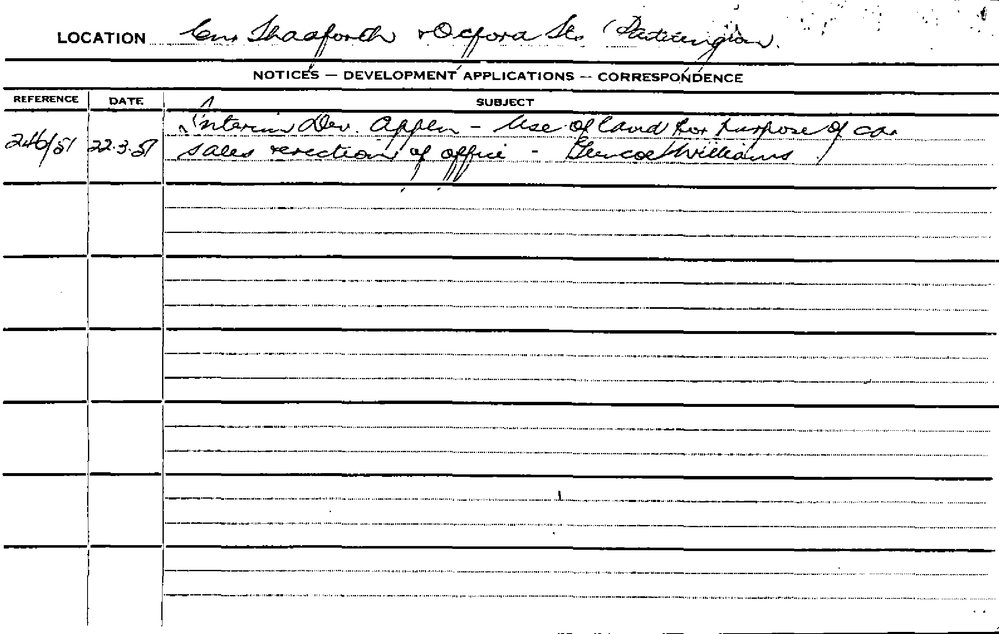 LOCATION Cnr Shadforth & Oxford Sts. (Paddington).
NOTICES — DEVELOPMENT APPLICATIONS — CORRESPONDENCE
REFERENCE DATE SUBJECT
246/57 22-3-57 Interim Dev. Appln - Use of land for purpose of car
sales & erection of office - Glencoe Williams